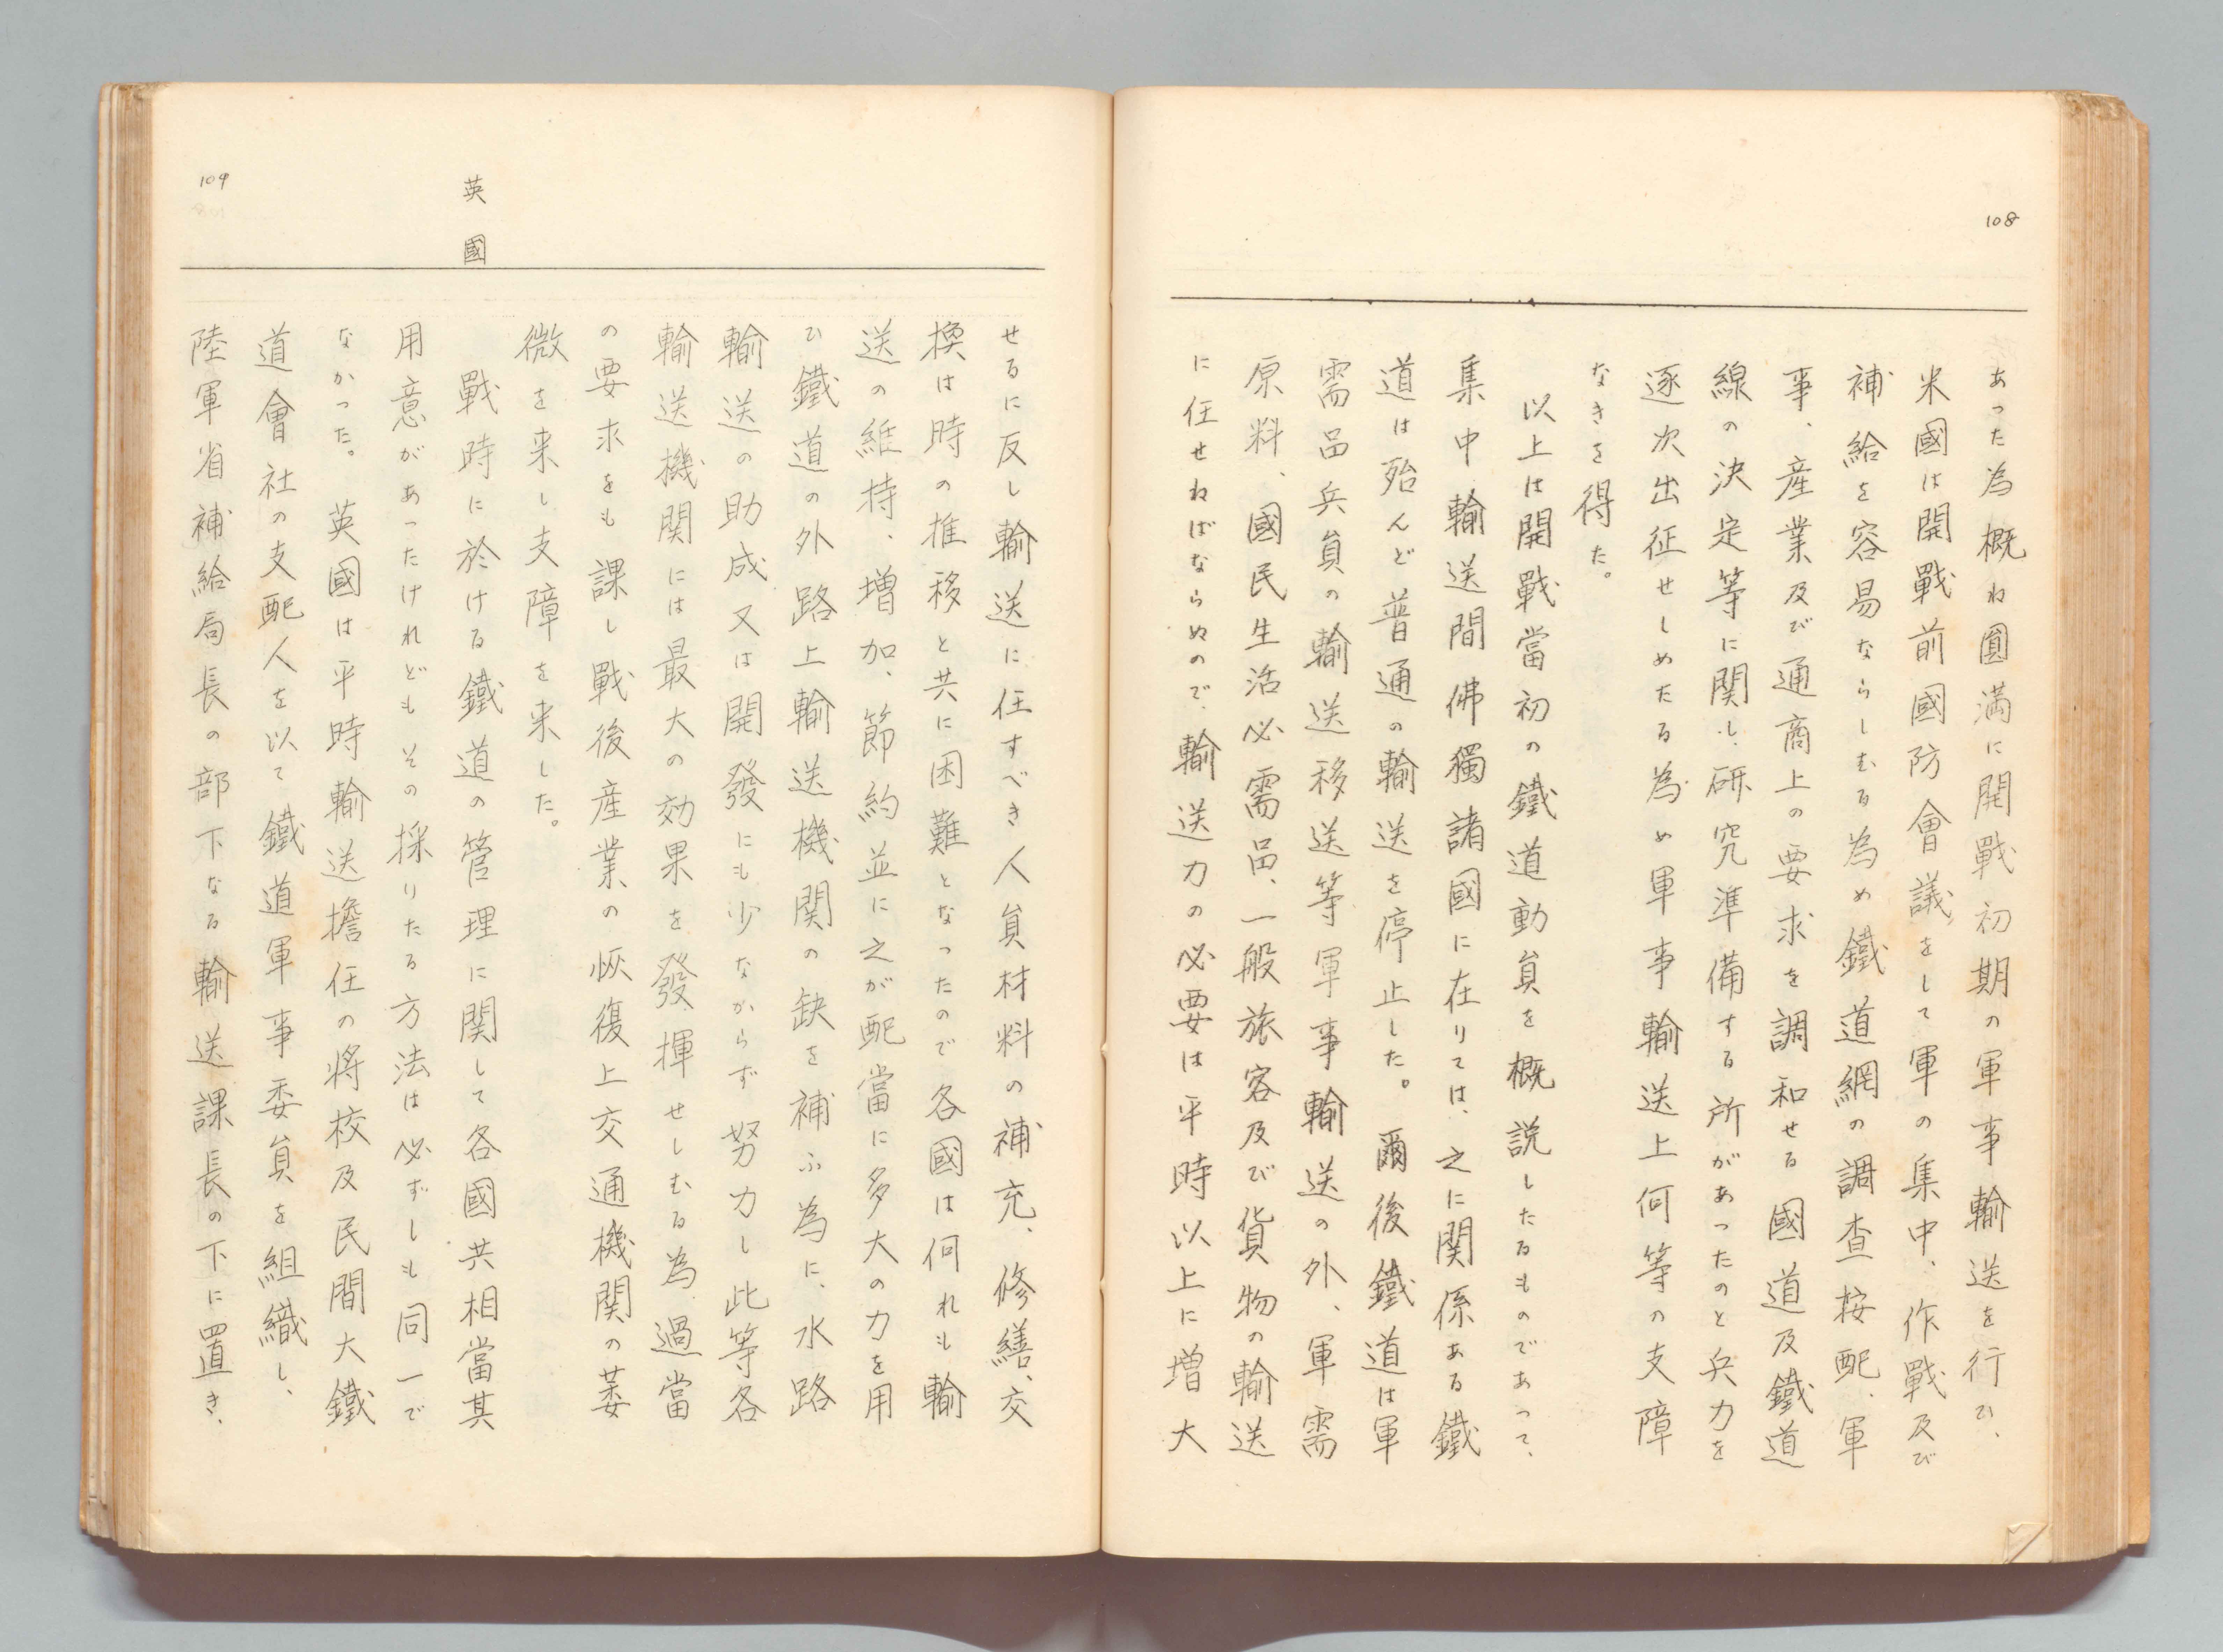 108
あった為概ね圓満に開戰初期の軍事輸送を行ひ、
米國は開戰前國防會議をして軍の集中、作戰及び
補給を容易ならしむる為め鐵道網の調査按配、軍
事、産業及び通商上の要求を調和せる國道及鐵道
線の決定等に関し、研究準備する所があったのと兵力を
逐次出征せしめたる為め軍事輸送上何等の支障
なきを得た。
以上は開戰當初の鐵道動員を概説したるものであって、
集中輸送間佛獨諸國に在りては、之に関係ある鐵
道は殆んど普通の輸送を停止した。爾後鐵道は軍
需品兵員の輸送移送等軍事輸送の外、軍需
原料、國民生活必需品、一般旅客及び貨物の輸送
に任せねばならぬので、輸送力の必要は平時以上に増大
せるに反し輸送に任すべき人員材料の補充、修繕、交
換は時の推移と共に困難となったので各國は何れも輸
送の維持、増加、節約並に之が配當に多大の力を用
ひ鐵道の外路上輸送機関の缺を補ふ為に、水路
輸送の助成又は開發にも少なからず努力し此等各
輸送機関には最大の効果を發揮せしむる為過當
の要求をも課し戰後産業の恢復上交通機関の萎
微を来し支障を来した。
戰時に於ける鐵道の管理に関して各國共相當其
用意があったけれどもその採りたる方法は必ずしも同一で
なかった。英國は平時輸送擔任の將校及民間大鐵
道會社の支配人を以て鐵道軍事委員を組織し、
陸軍省補給局長の部下なる輸送課長の下に置き、
英國
109